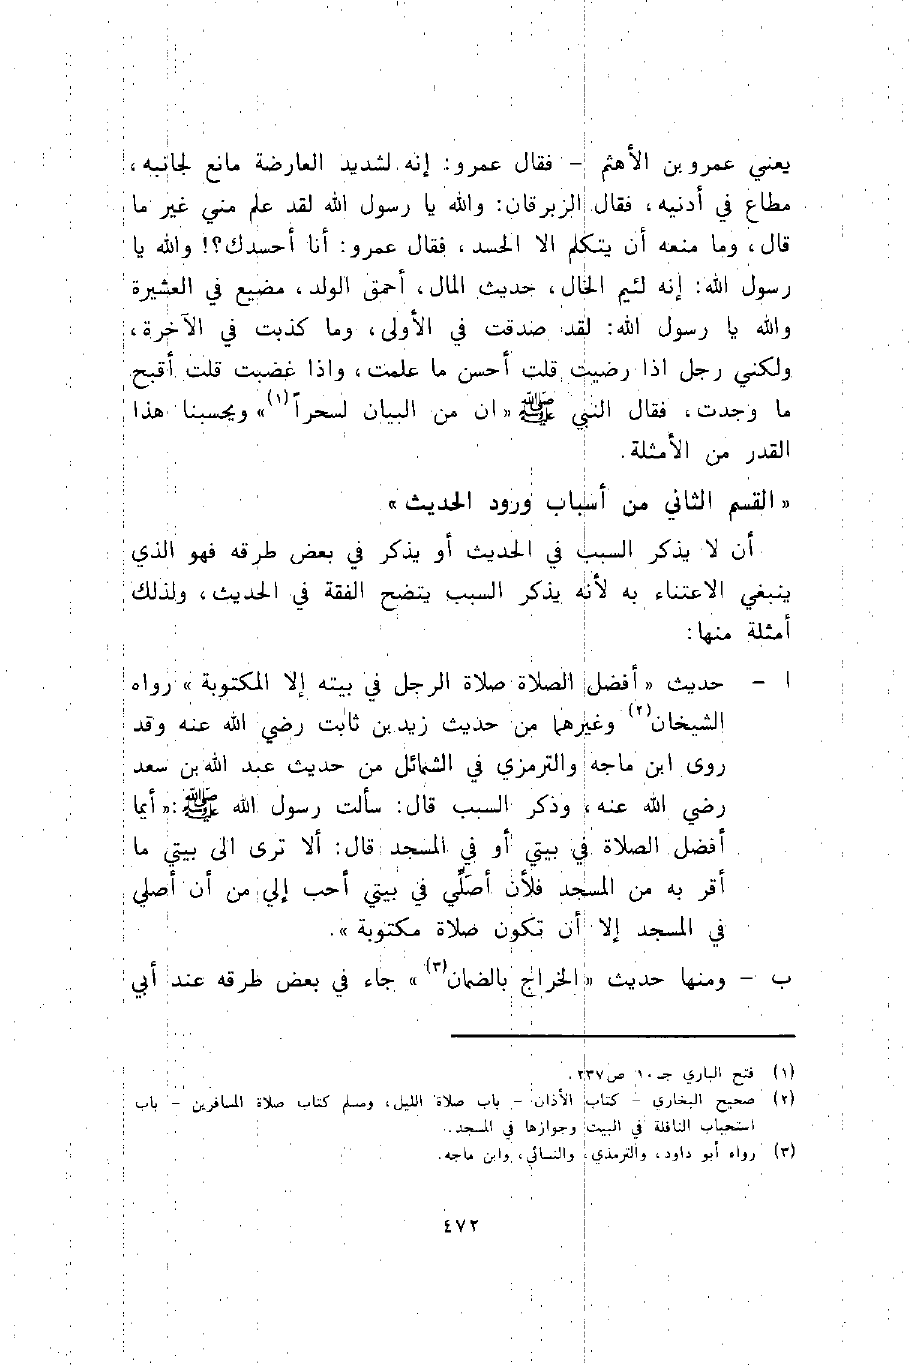 يعني عمرو بن الأهثم - فقال عمرو: إنه لشديد العارضة مانع لجانبه،
مطاع في أدنيه، فقال الزبرقان: والله يا رسول الله لقد علم مني غير ما
قال، وما منعه أن يتكلم الا الحسد، فقال عمرو: أنا أحسدك؟! والله يا
رسول الله: إنه لئيم الخال، حديث المال، أحمق الولد، مضيع في العشيرة
والله يا رسول الله: لقد صدقت في الأولى، وما كذبت في الآخرة،
ولكني رجل اذا رضيت قلت أحسن ما علمت، واذا غضبت قلت أقبح
ما وجدت، فقال النبي ﷺ «ان من البيان لسحراً(١)» ويحسبنا هذا
القدر من الأمثلة.
«القسم الثاني من أسباب ورود الحديث»
أن لا يذكر السبب في الحديث أو يذكر في بعض طرقه فهو الذي
ينبغي الاعتناء به لأنه يذكر السبب يتضح الفقة في الحديث، ولذلك
أمثلة منها:
ا - حديث «أفضل الصلاة صلاة الرجل في بيته إلا المكتوبة» رواه
الشيخان(٢) وغيرهما من حديث زيد بن ثابت رضي الله عنه وقد
روى ابن ماجه والترمزي في الشمائل من حديث عبد الله بن سعد
رضي الله عنه، وذكر السبب قال: سألت رسول الله ﷺ: «أيما
أفضل الصلاة في بيتي أو في المسجد قال: ألا ترى الى بيتي ما
أقر به من المسجد فلأن أصَلِّي في بيتي أحب إلي من أن أصلي
في المسجد إلا أن تكون صلاة مكتوبة».
ب - ومنها حديث «الخراج بالضمان(٣)» جاء في بعض طرقه عند أبي
(١) فتح الباري جـ ١٠ ص ٢٣٧.
(٢) صحيح البخاري - كتاب الأذان - باب صلاة الليل، ومسلم كتاب صلاة المسافرين - باب
استحباب النافلة في البيت وجوازها في المسجد.
(٣) رواه أبو داود، والترمذي، والنسائي، وابن ماجه.
٤٧٢